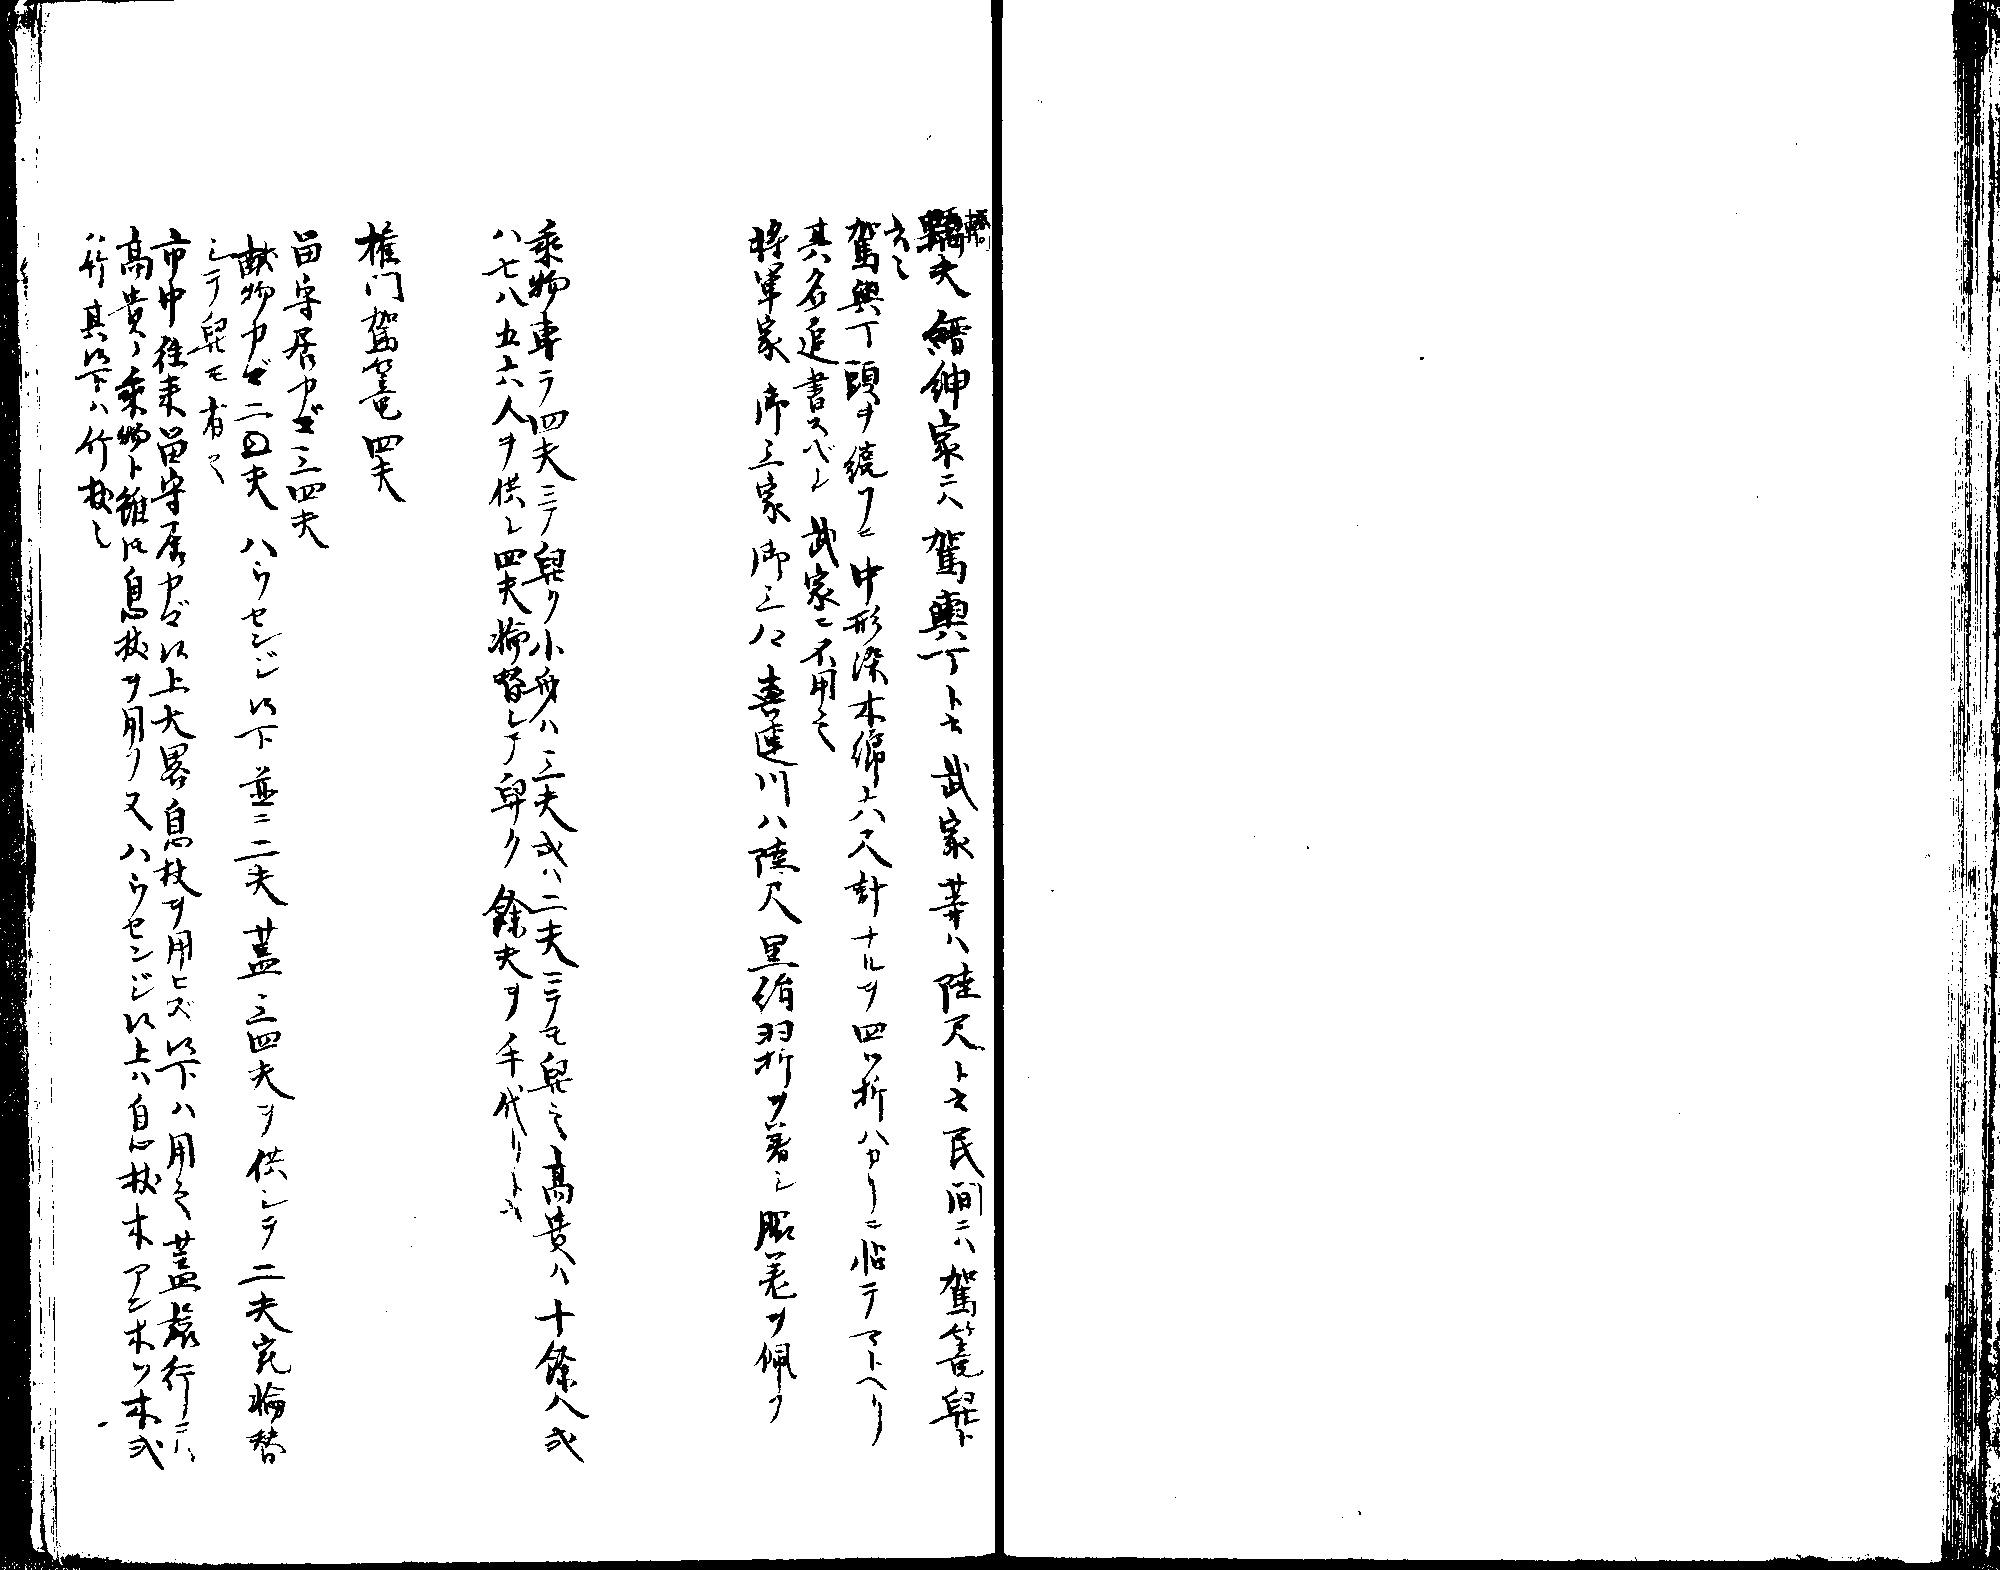 轎夫 縉紳家ニハ駕輿丁ト云武家等ハ陸尺ト云民間ニハ駕篭舁ト
云也
駕輿丁頭ヲ繞フニ中形染木綿ノ六尺計ナルヲ四ツ折ハカリニ帖テマトヘリ
其名追書スベシ 武家ニ不用之也
将軍家 御三家 御三卿 喜連川ハ陸尺黒絹羽折ヲ著シ脇差ヲ佩フ
乗物専ラ四夫ニテ舁ク小身ハ三夫或ハ二夫ニテモ舁之也高貴ハ十餘人或
ハ七八五六人ヲ供シ四夫輪替シテ舁ク餘夫ヲ手代リト云
権門駕篭四夫
留守居カゴ三四夫
献物カゴ二四夫 ハウセンジ以下並ニ二夫蓋三四夫ヲ供シテ二夫宛輪替
シテ舁モ有也
市中往来留守居カゴ以上大畧息杖ヲ用ヒズ以下ハ用之也蓋旅行ニハ
高貴ノ乗物ト雖ドモ息杖ヲ用フ又ハウセンジ以上ハ息杖木アンホツ木或
ハ竹其以下ハ竹杖也